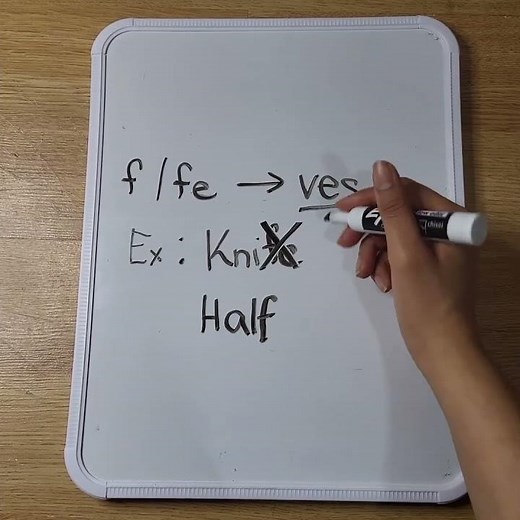 f/fe → ves
Ex: Knife
Half